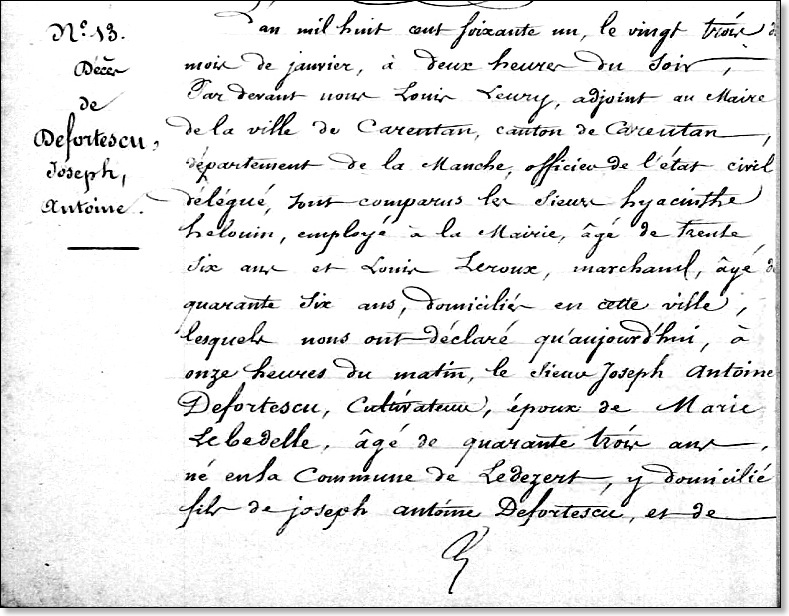 N.° 13.
Décès
de
Defortescu,
Joseph,
Antoine.
L'an mil huit cent soixante un, le vingt trois de
mois de janvier, à deux heures du soir,
Par devant nous Louis Leury, adjoint au Maire
de la ville de Carentan, canton de Carentan,
département de la Manche, officier de l'état civil
délégué, sont comparus les sieurs hyacinthe
helouin, employé à la Mairie, âgé de trente
six ans et Louis Leroux, marchand, âgé de
quarante six ans, domiciliés en cette ville,
lesquels nous ont déclaré qu'aujourd'hui, à
onze heures du matin, le sieur Joseph Antoine
Defortescu, Cultivateur, époux de Marie
Lebedelle, âgé de quarante trois ans,
né en la Commune de Ledezert, y domicilié
fils de joseph antoine Defortescu, et de